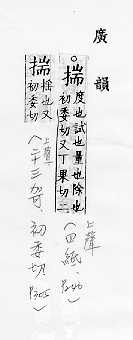 廣韻
。揣度也試也量也除也
初委切又丁果切二
上聲
〈四紙，P246〉
揣搖也又
初委切
上聲
〈三十三哿，初委切，P305〉